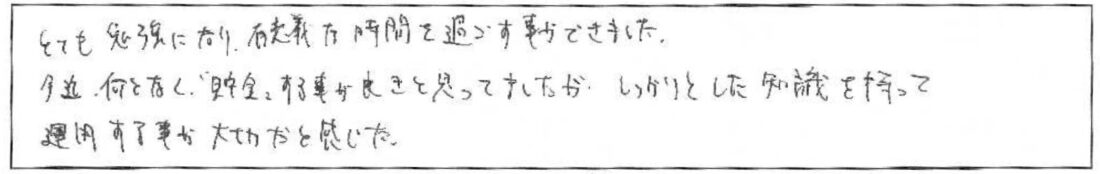 とても勉強になり、有意義な時間を過ごす事ができました。
今迄、何となく、"貯金"する事が良きと思ってましたが、しっかりとした知識を持って
運用する事が大切だと感じた。